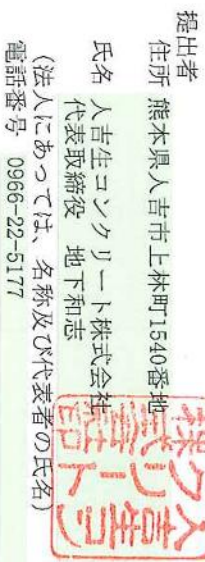 提出者
住所 熊本県人吉市上林町1540番地
氏名 人吉生コンクリート株式会社
代表取締役 地下和志
(法人にあっては、名称及び代表者の氏名)
電話番号 0966-22-5177
人吉生コンクリート株式会社印